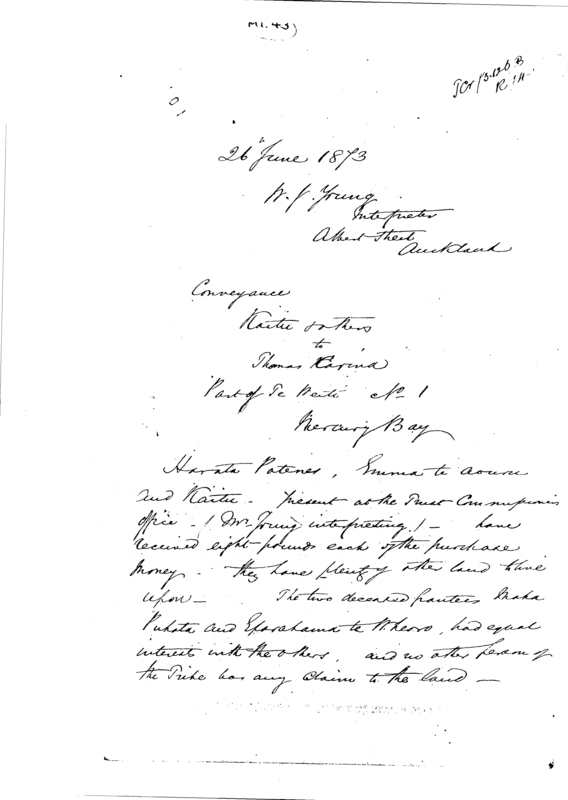 26th June 1873
W. J. Young
Interpreter
Albert Street
Auckland
Conveyance
Kaitu & others
to
Thomas Carina
Part of Te Weiti No 1
Mercury Bay
Harata Patene, Emma te
and Kaitu - present at the Trust Commissioners
office - (Mr Young interpreting) - have
received eight pounds each of the purchase
money - they have plenty of other land to live
upon - The two deceased grantees
Puhata and Eparahama te, had equal
interest with the others, and no other person of
the Tribe has any claim to the land -